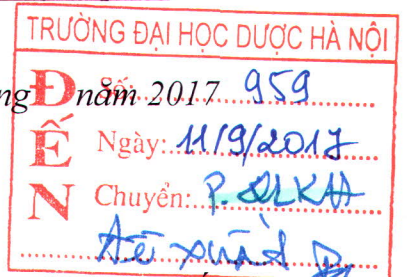 TRƯỜNG ĐẠI HỌC DƯỢC HÀ NỘI
ng
năm 2017
ĐẾN
Số: 959
Ngày: 11/9/2017
Chuyển: P. QLKH